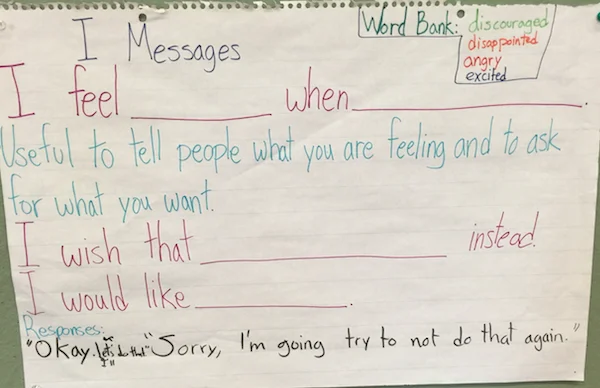 I Messages
Word Bank: discouraged
disappointed
angry
excited
I feel ________ when ________________.
Useful to tell people what you are feeling and to ask
for what you want.
I wish that ________________ instead.
I would like ___________.
Responses:
"Okay. let's do that" "Sorry, I'm going try to not do that again."